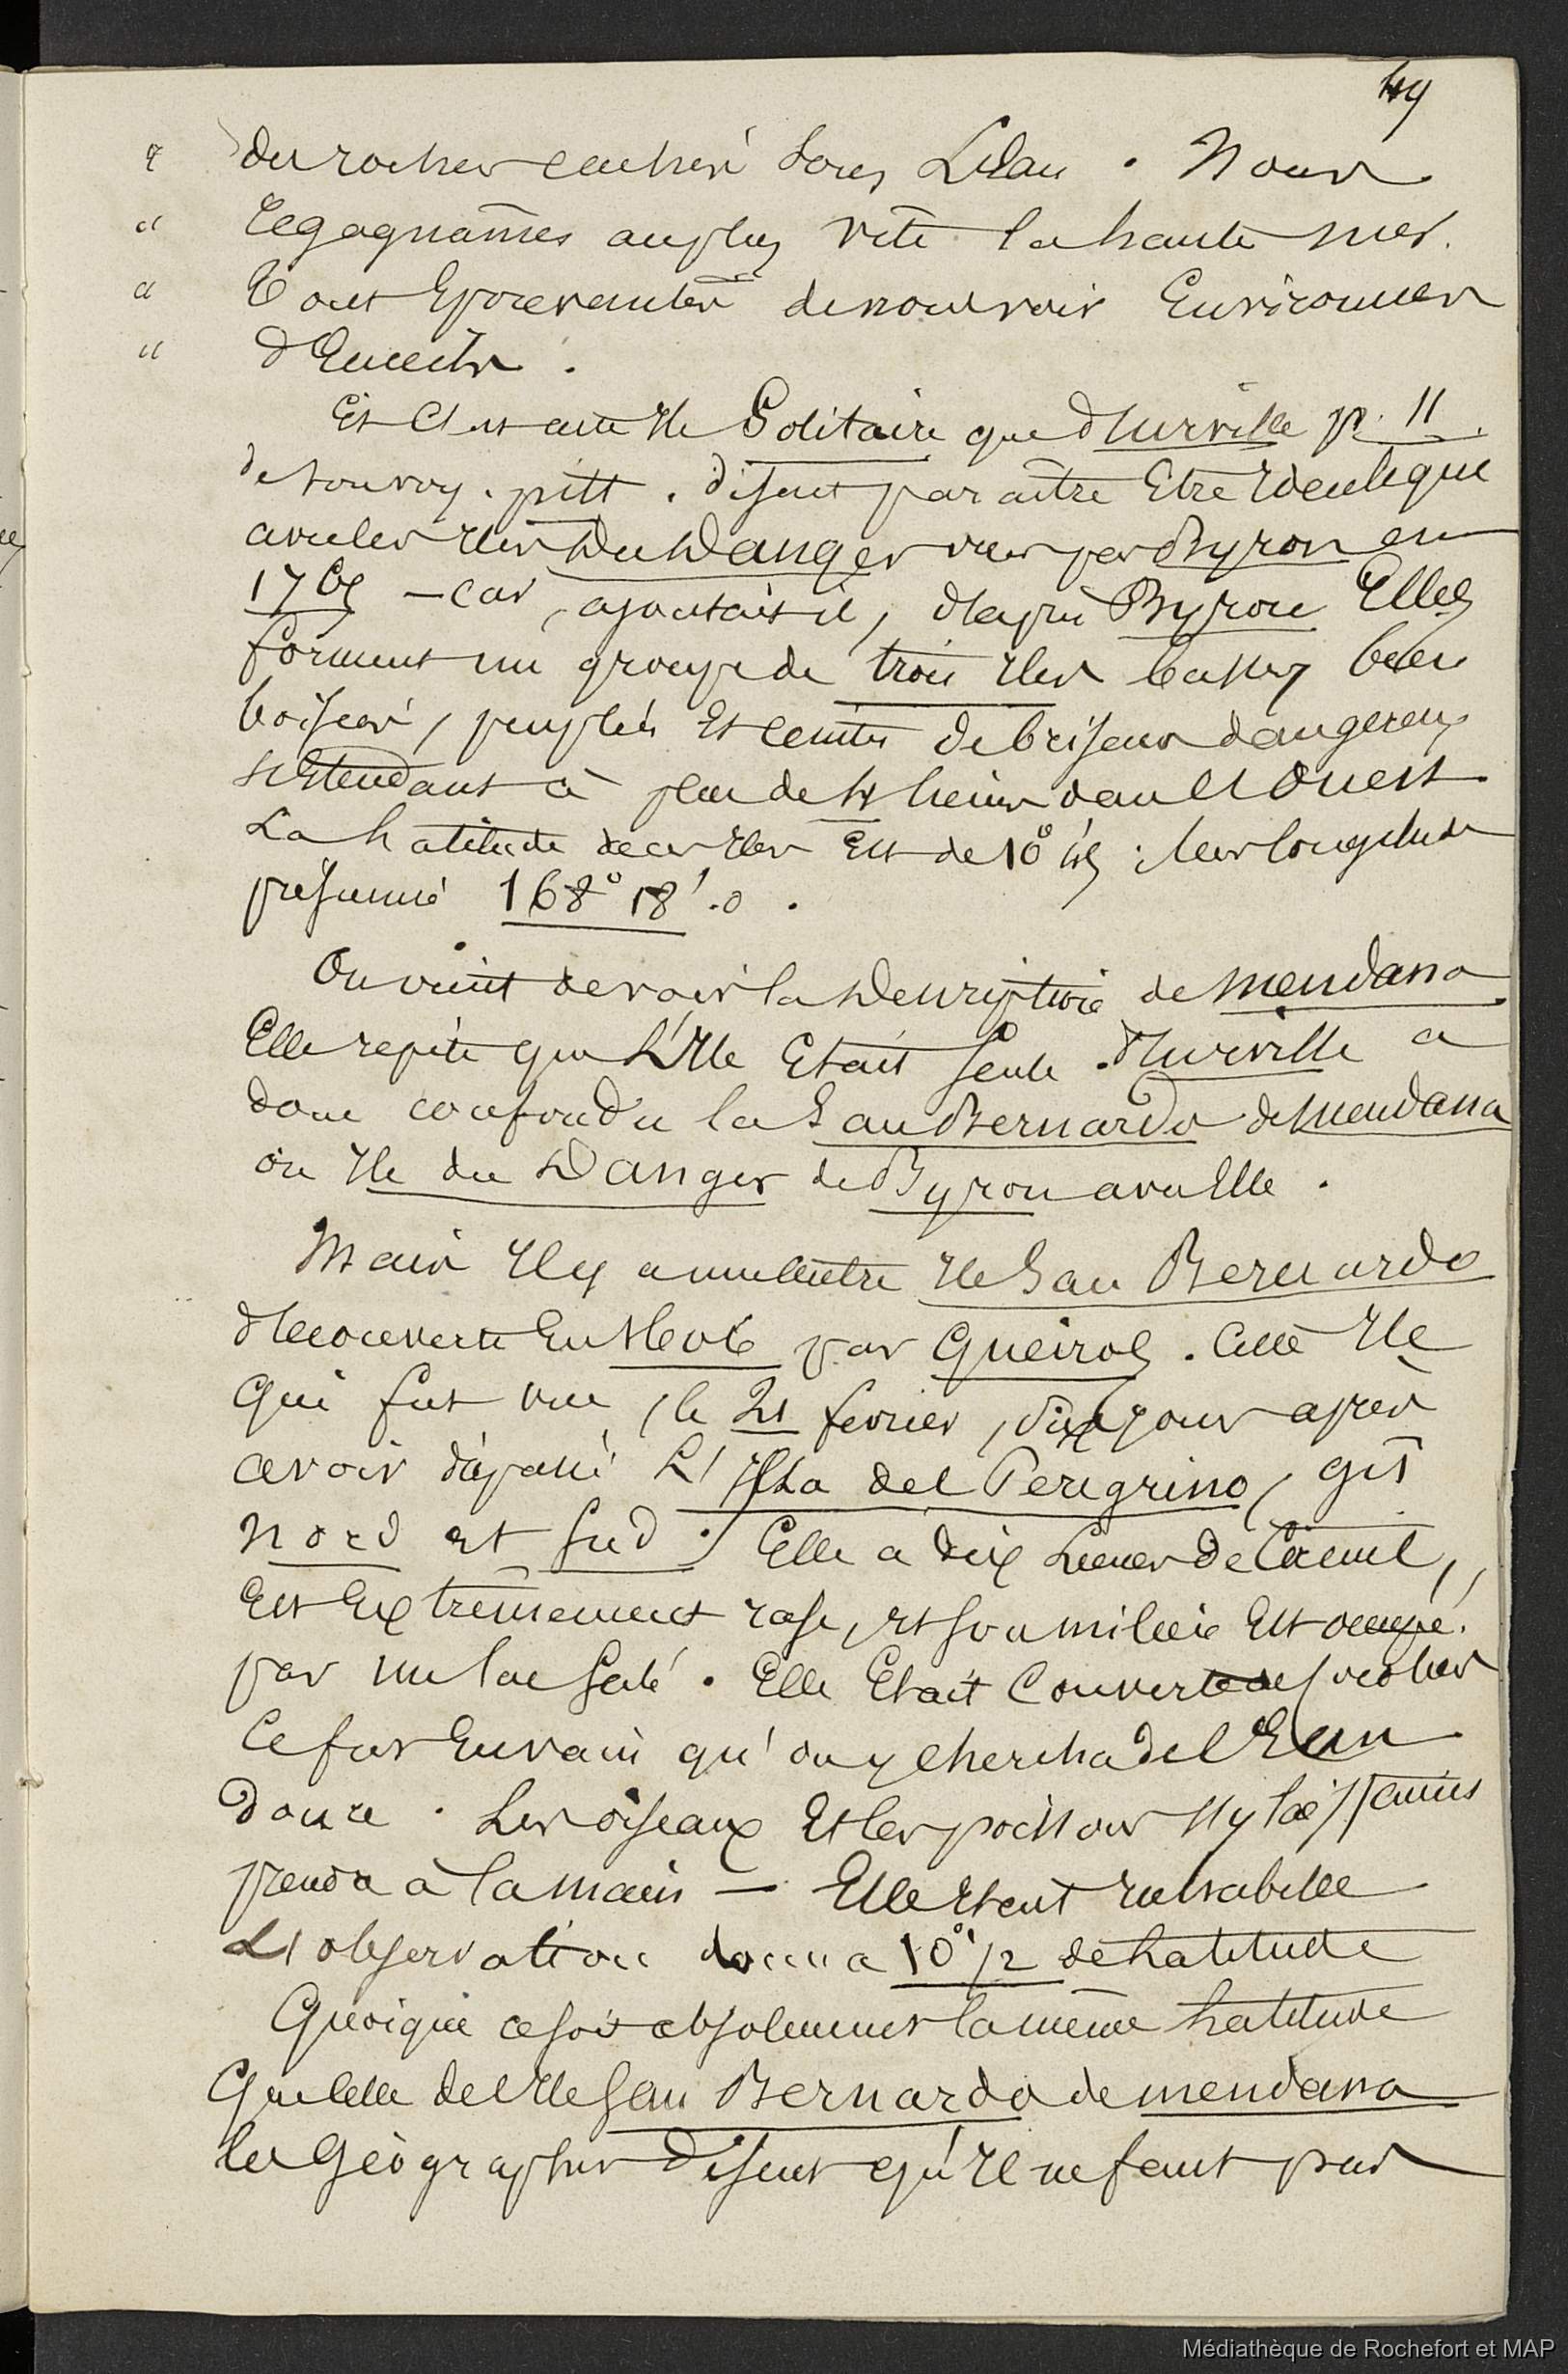 49
" des rochers cachés sous L'Eau . Nous
" regagnâmes au plus vîte la haute mer.
" Tout Epouvantés de nous voir Environnés
" d'Ecueils .
Et C'est cette Ile Solitaire que d'Urville p. 11.
de son voy. pitt. disait paraître Etre Identique
avec les Iles Du Danger vues par Byron en
1765 — car , ajoutait il , d'après Byron Elles
forment un groupe de trois Iles basses bien
boisées , peuplées Et ceintes de brisans dangereux
s'Etendant à plus de 4 lieues dans l'Ouest
La Latitude de ces Iles Est de 10° 45 ; leur longitude
présumée 168° 18' .O .
On vient de voir la Description de Mendana
Elle répète que L'Ile Etait Seule . d'Urville a
donc confondu la San Bernardo de Mendana
ou Ile du Danger de Byron avec Elle .
Mais Il y a une autre Ile San Bernardo
découverte En 1606 par Queiros . Cette Ile
qui fut vue , le 21 février , dix jours après
avoir dépassé L'Isla del Peregrino , gît
nord et Sud . Elle a dix Lieues de Circuit ,
Est Extrêmement rase , et son milieu Est occupé
par un lac salé . Elle Etait Couverte de rochers
Ce fut En vain qu'on y chercha de l'Eau
douce . Les oiseaux Et les poissons s'y laissaient
prendre à la main — Elle Etait Inhabitée
L'observation donna 10° 1/2 de Latitude
Quoique ce soit absolument la même Latitude
Que celle de l'Ile San Bernardo de Mendana
les Géographes disent qu'Il ne faut pas
Médiathèque de Rochefort et MAP